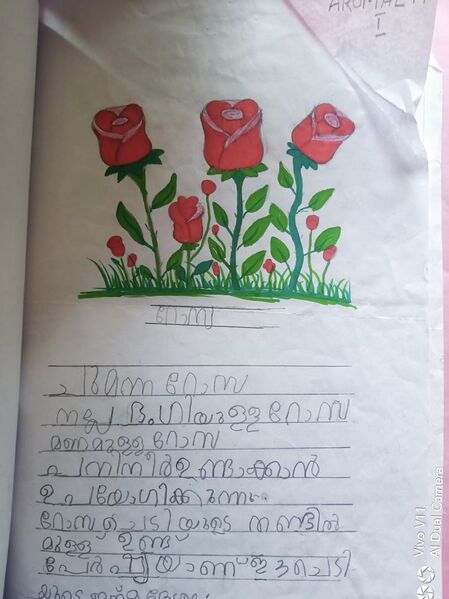 AROMAL M
I
റോസ
ചുമന്ന റോസ
നല്ല ഭംഗിയുള്ള റോസ
മണമുള്ള റോസ
പനിനീർ ഉണ്ടാക്കാൻ
ഉപയോഗിക്കുന്നു.
റോസ ചെടിയുടെ തണ്ടിൽ
മുള്ള് ഉണ്ട്
പേർഷ്യയാണ് ഈ ചെടി
യുടെ
Vivo V11
AI Dual Camera